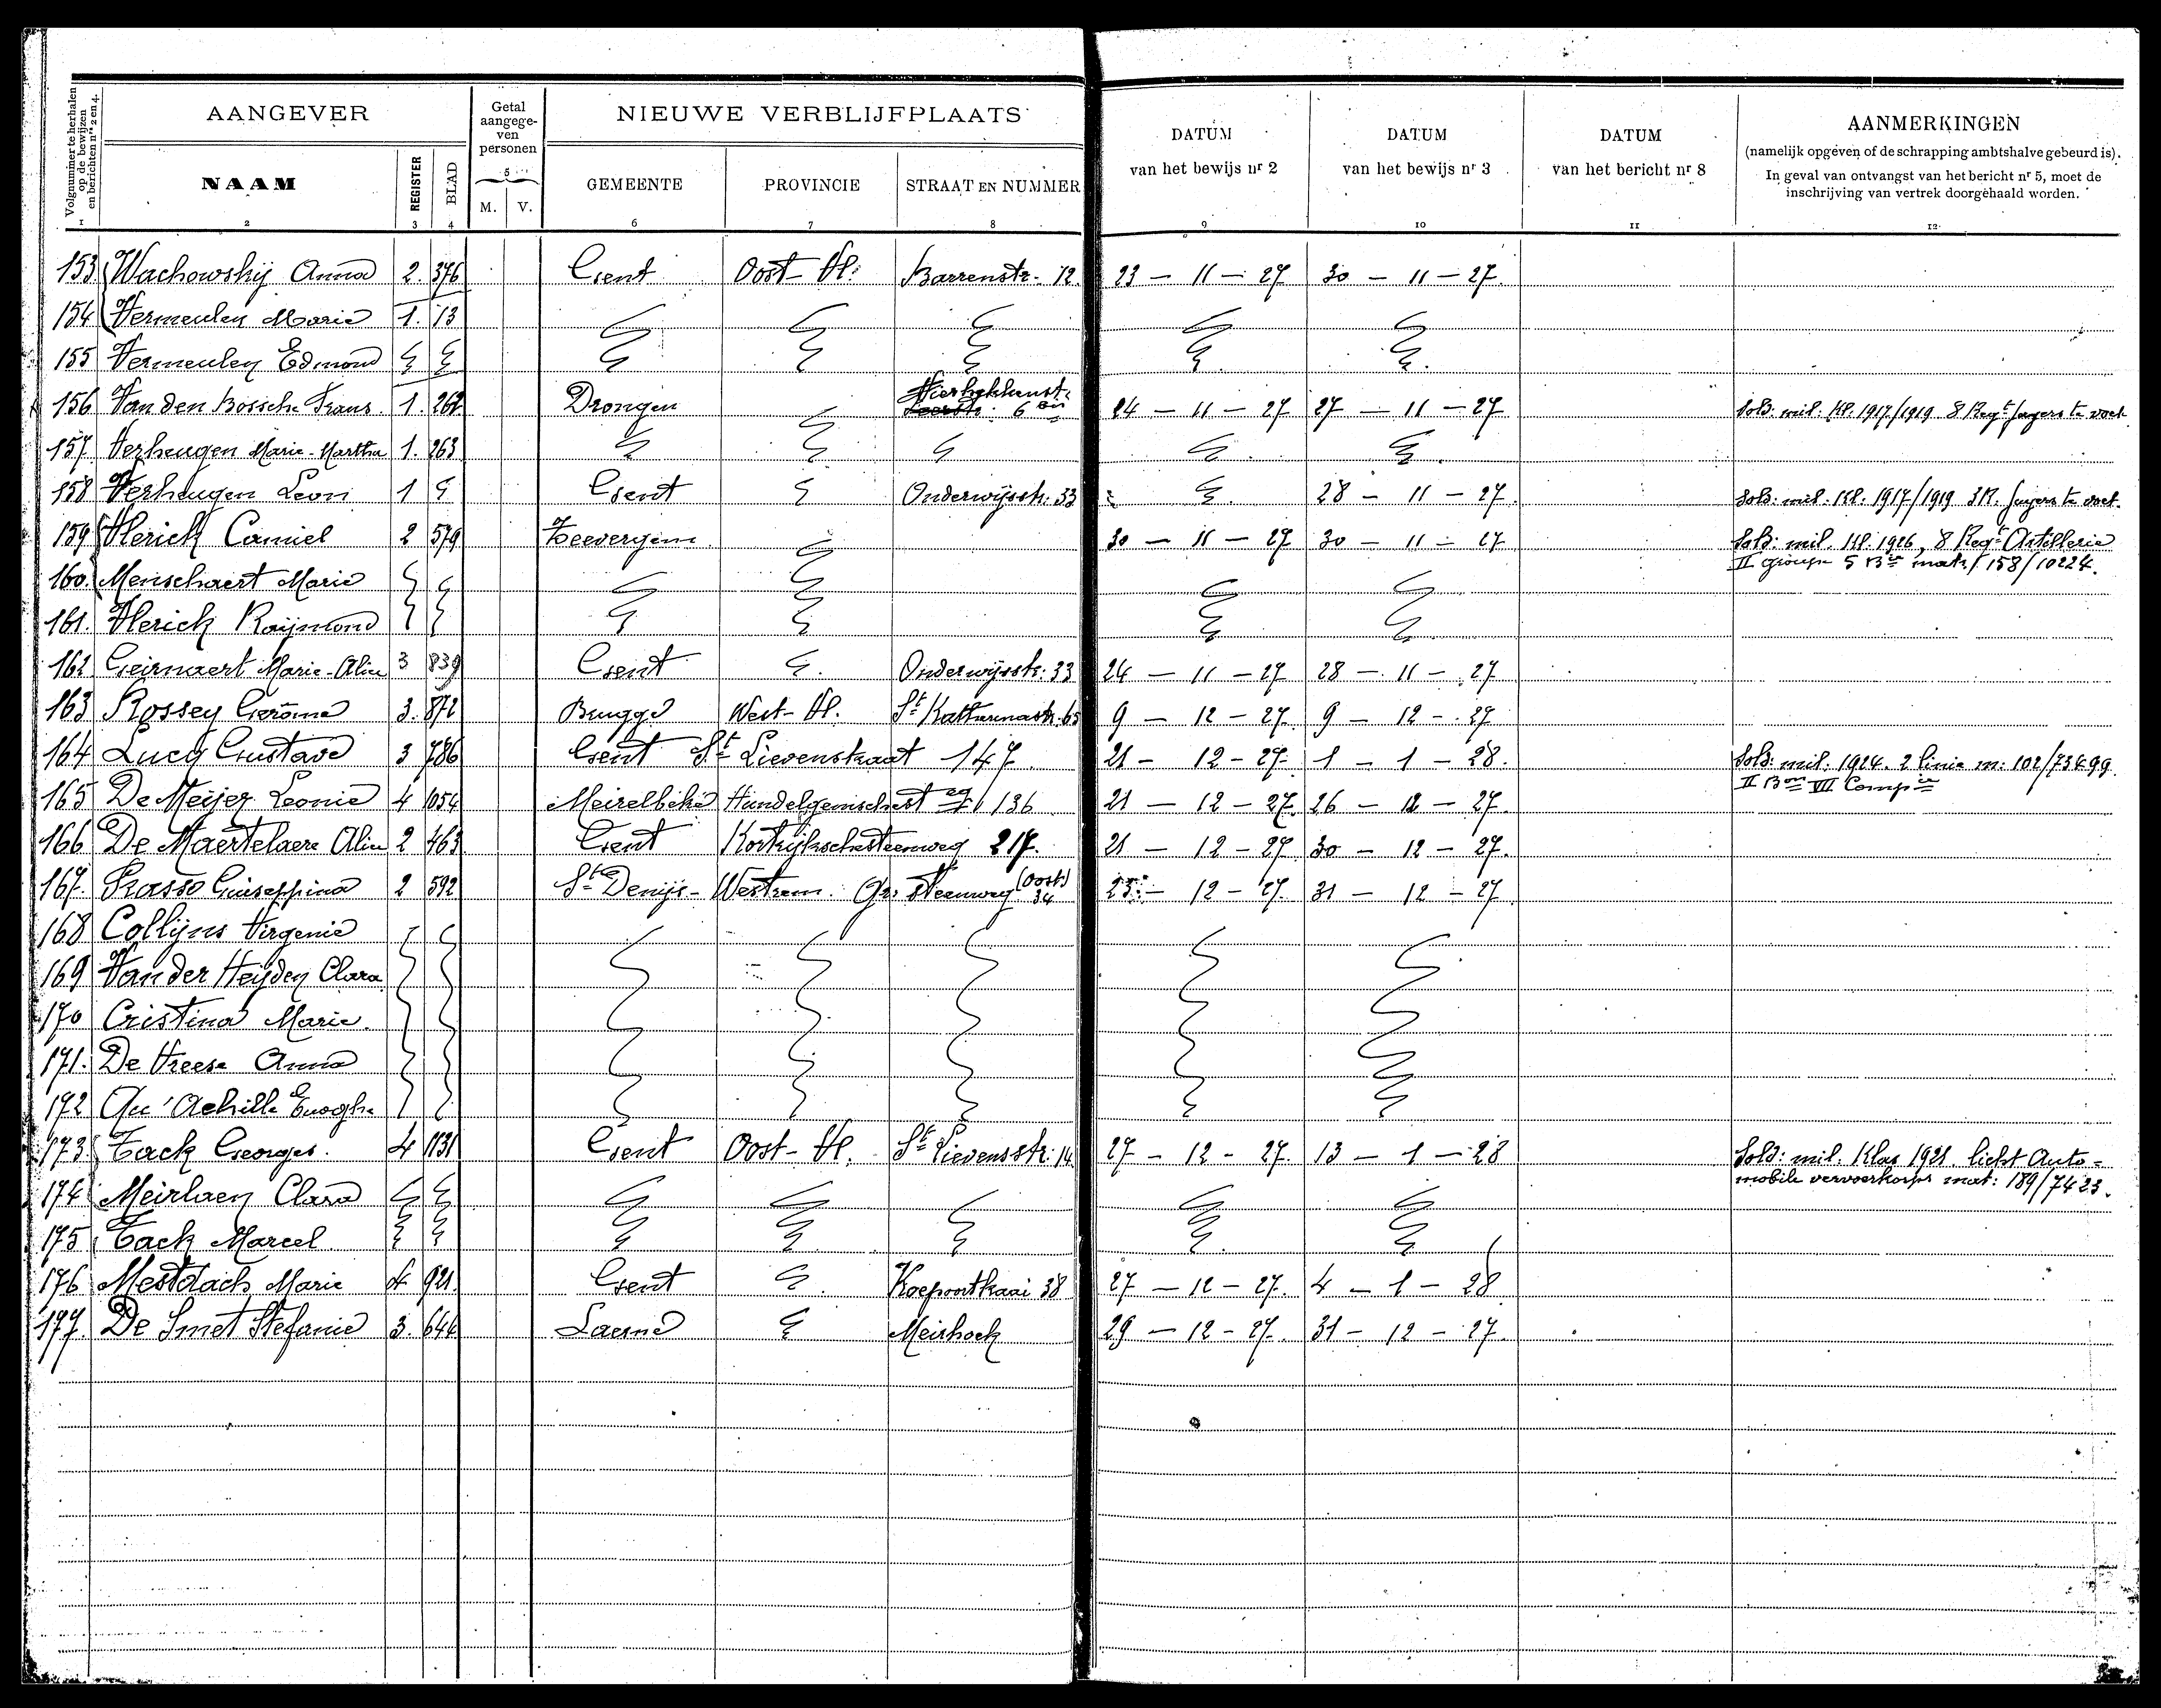 Volgnummer te herhalen op de bewijzen en berichten nrs 2 en 4.
AANGEVER
Getal aangegeven personen
NIEUWE VERBLIJFPLAATS
DATUM van het bewijs nr 2
DATUM van het bewijs nr 3
DATUM van het bericht nr 8
AANMERKINGEN
(namelijk opgeven of de schrapping ambtshalve gebeurd is).
In geval van ontvangst van het bericht nr 5, moet de
inschrijving van vertrek doorgehaald worden.
NAAM REGISTER BLAD 5 M. V. GEMEENTE PROVINCIE STRAAT EN NUMMER
1 2 3 4 6 7 8 9 10 11 12
153 Wachowskij Anna 2. 376 Gent Oost-Vl. Barrenstr. 12. 23 - 11 - 27 30 - 11 - 27.
154 Vermeulen Marie 1. 13
155 Vermeulen Edmond
156 Van den Bossche Frans 1. 262 Drongen Vierhekkenst. 6 24 - 11 - 27 27 - 11 - 27 Sold: mil. Kl. 1917/1919 8 Regt Jagers te voet
157. Verheugen Marie-Martha 1. 263
158 Verheugen Leon 1 Gent Onderwijsstr: 33 28 - 11 - 27. Sold: mil: Kl: 1917/1919 3R. Jagers te voet.
159 Vlerick Camiel 2 579 Zeevergem. 30 - 11 - 27 30 - 11 - 27 Sold: mil. Kl. 1926, 8 Regt Artillerie
II groupe 5 Bie matr/ 158/10224.
160. Menschaert Marie
161. Vlerick Raijmond
162 Geirnaert Marie-Alice 3 839 Gent Onderwijsstr: 33 24 - 11 - 27 28 - 11 - 27
163 Rossey Gerôme 3. 872 Brugge West-Vl. St Katharinastr. 65 9 - 12 - 27. 9 - 12 - 27
164 Lucy Gustave 3 786 Gent St Lievenstraat 147. 21 - 12 - 27. 1 - 1 - 28. Sold: mil. 1924. 2 linie m: 102/73499.
II Bon VII Compie
165 De Meijer Leonie 4 1054 Meirelbeke Hundelgemschest eg 136 21 - 12 - 27. 26 - 12 - 27.
166 De Maertelaere Alice 2 463 Gent Kortrijkschesteenweg 217. 21 - 12 - 27 30 - 12 - 27.
167. Prasso Guiseppina 2 592 St Denijs-Westrem. Gr. Steenweg (Oost.) 34 23 - 12 - 27. 31 - 12 - 27
168 Collijns Virgenie
169 Van der Heijden Clara
170 Cristina Marie.
171. De Vreese Anna
172 Qu'Achille
173. Tack Georges. 4 1131 Gent Oost-Vl. St Lievensstr: 14 27 - 12 - 27. 13 - 1 - 28 Sold: mil. Klas 1921. licht Auto-
mobile vervoerkorps mat: 189/7423.
174 Meirlaen Clara
175 Tack Marcel
176 Mestdach Marie 4 921. Gent Koepoortkaai 38 27 - 12 - 27. 4 - 1 - 28
177. De Smet Stefanie 3. 644 Laerne Meirhoek 29 - 12 - 27. 31 - 12 - 27.